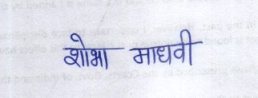 शोभा माधवी